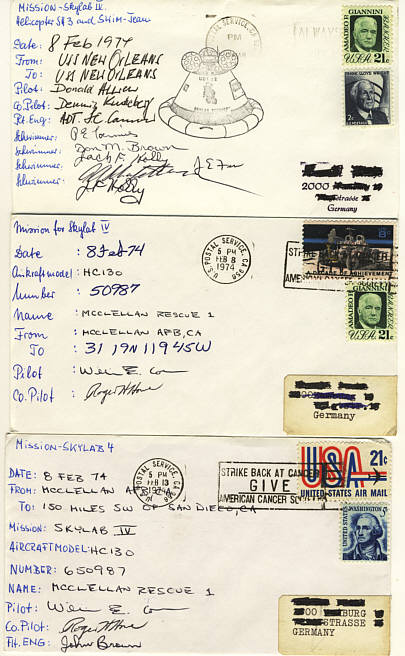 MISSION-Skylab IV.
Helicopter SH3 and Swim-Team
Date: 8 Feb 1974
From: USS NEW ORLEANS
To: USS NEW ORLEANS
Pilot:
Co.Pilot:
Flt.Eng:
Schwimmer:
Schwimmer: Don M. Brown
Schwimmer: Jack F. Kelly
Schwimmer:
POSTAL SERVICE
PM
AMADEO P. GIANNINI
USA 21c
FRANK LLOYD WRIGHT
2c
2000
strasse
Germany
Mission for Skylab IV
Date : 8 Feb 74
Aircraftmodel: HC130
Number : 50987
Name : MCCLELLAN RESCUE 1
From : MCCLELLAN AFB, CA
To : 31 19N 119 45W
Pilot :
Co.Pilot : Roger
U.S. POSTAL SERVICE, CA 958
5 PM
FEB 8
1974
8c
A DECADE OF ACHIEVEMENT
AMADEO P. GIANNINI
USA 21c
Germany
MISSION-SKYLAB 4
DATE: 8 FEB 74
FROM: MCCLELLAN AFB, CA
TO: 150 MILES SW OF SAN DIEGO, CA
MISSION: SKYLAB IV
AIRCRAFTMODEL: HC130
NUMBER: 650987
NAME: MCCLELLAN RESCUE 1
Pilot:
Co.Pilot: Roger
Flt.ENG: John Brown
POSTAL SERVICE, CA 958
PM
FEB 13
1974
STRIKE BACK AT CANCER
GIVE
AMERICAN CANCER SOCIETY
USA 21c
UNITED STATES AIR MAIL
WASHINGTON 5c
BURG
STRASSE
GERMANY